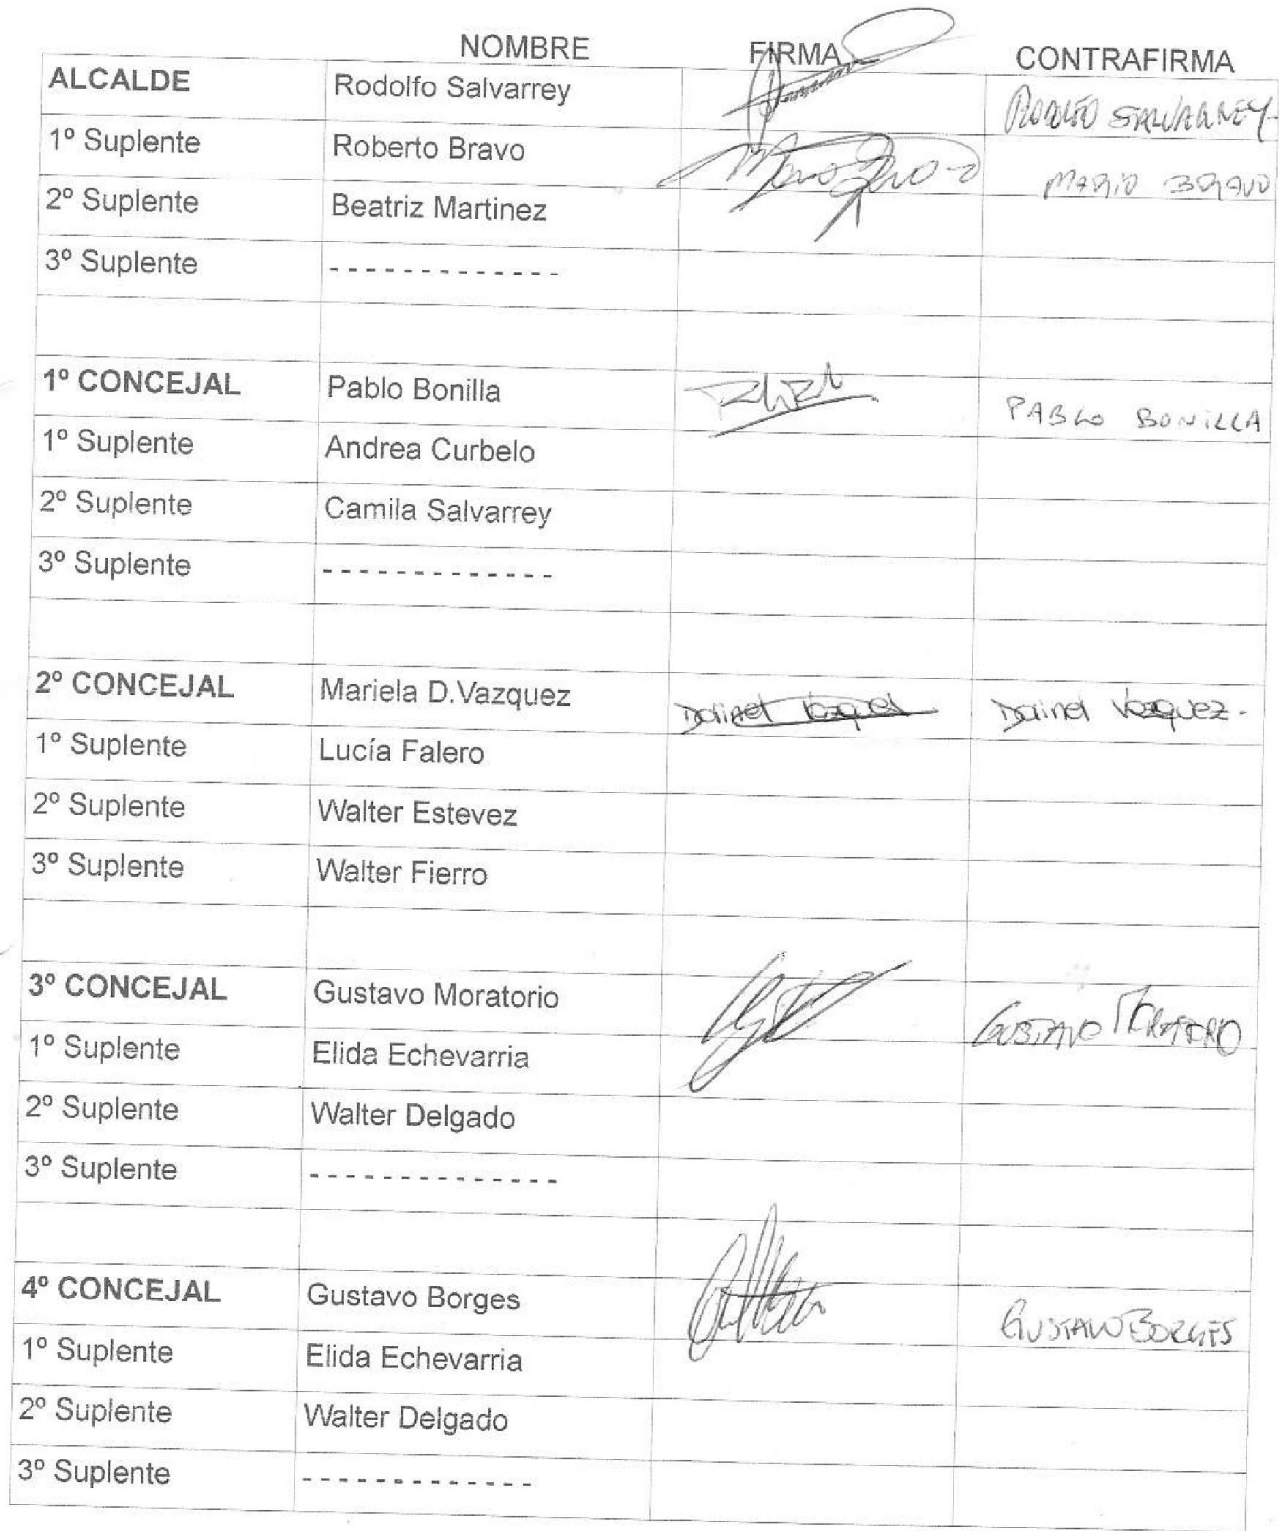 NOMBRE FIRMA CONTRAFIRMA
ALCALDE Rodolfo Salvarrey RODOLFO SALVARREY
1º Suplente Roberto Bravo Mario Bravo MARIO BRAVO
2º Suplente Beatriz Martinez
3º Suplente -------------
1º CONCEJAL Pablo Bonilla PABLO BONILLA
1º Suplente Andrea Curbelo
2º Suplente Camila Salvarrey
3º Suplente -------------
2º CONCEJAL Mariela D.Vazquez Dorinel Vazquez Dorinel Vazquez.
1º Suplente Lucía Falero
2º Suplente Walter Estevez
3º Suplente Walter Fierro
3º CONCEJAL Gustavo Moratorio GUSTAVO MORATORIO
1º Suplente Elida Echevarria
2º Suplente Walter Delgado
3º Suplente --------------
4º CONCEJAL Gustavo Borges GUSTAVO BORGES
1º Suplente Elida Echevarria
2º Suplente Walter Delgado
3º Suplente -------------